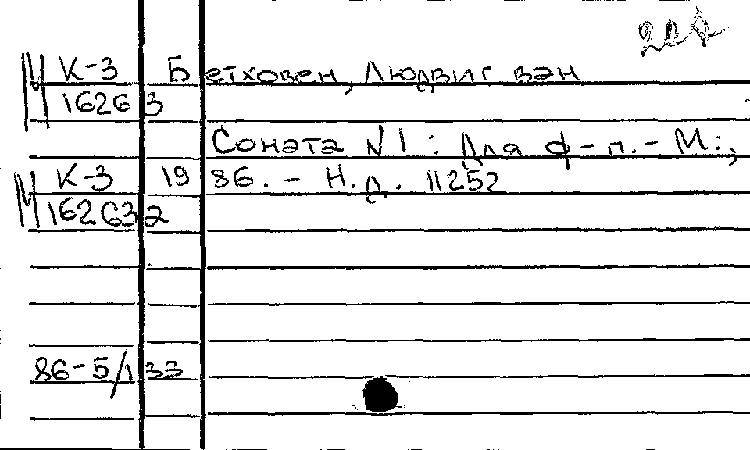 К-3 Бетховен, Людвиг ван
16263
Соната N1: Для ф-п.- М.:,
К-3 1986. - Н.д. 11252
162632
86-5/133